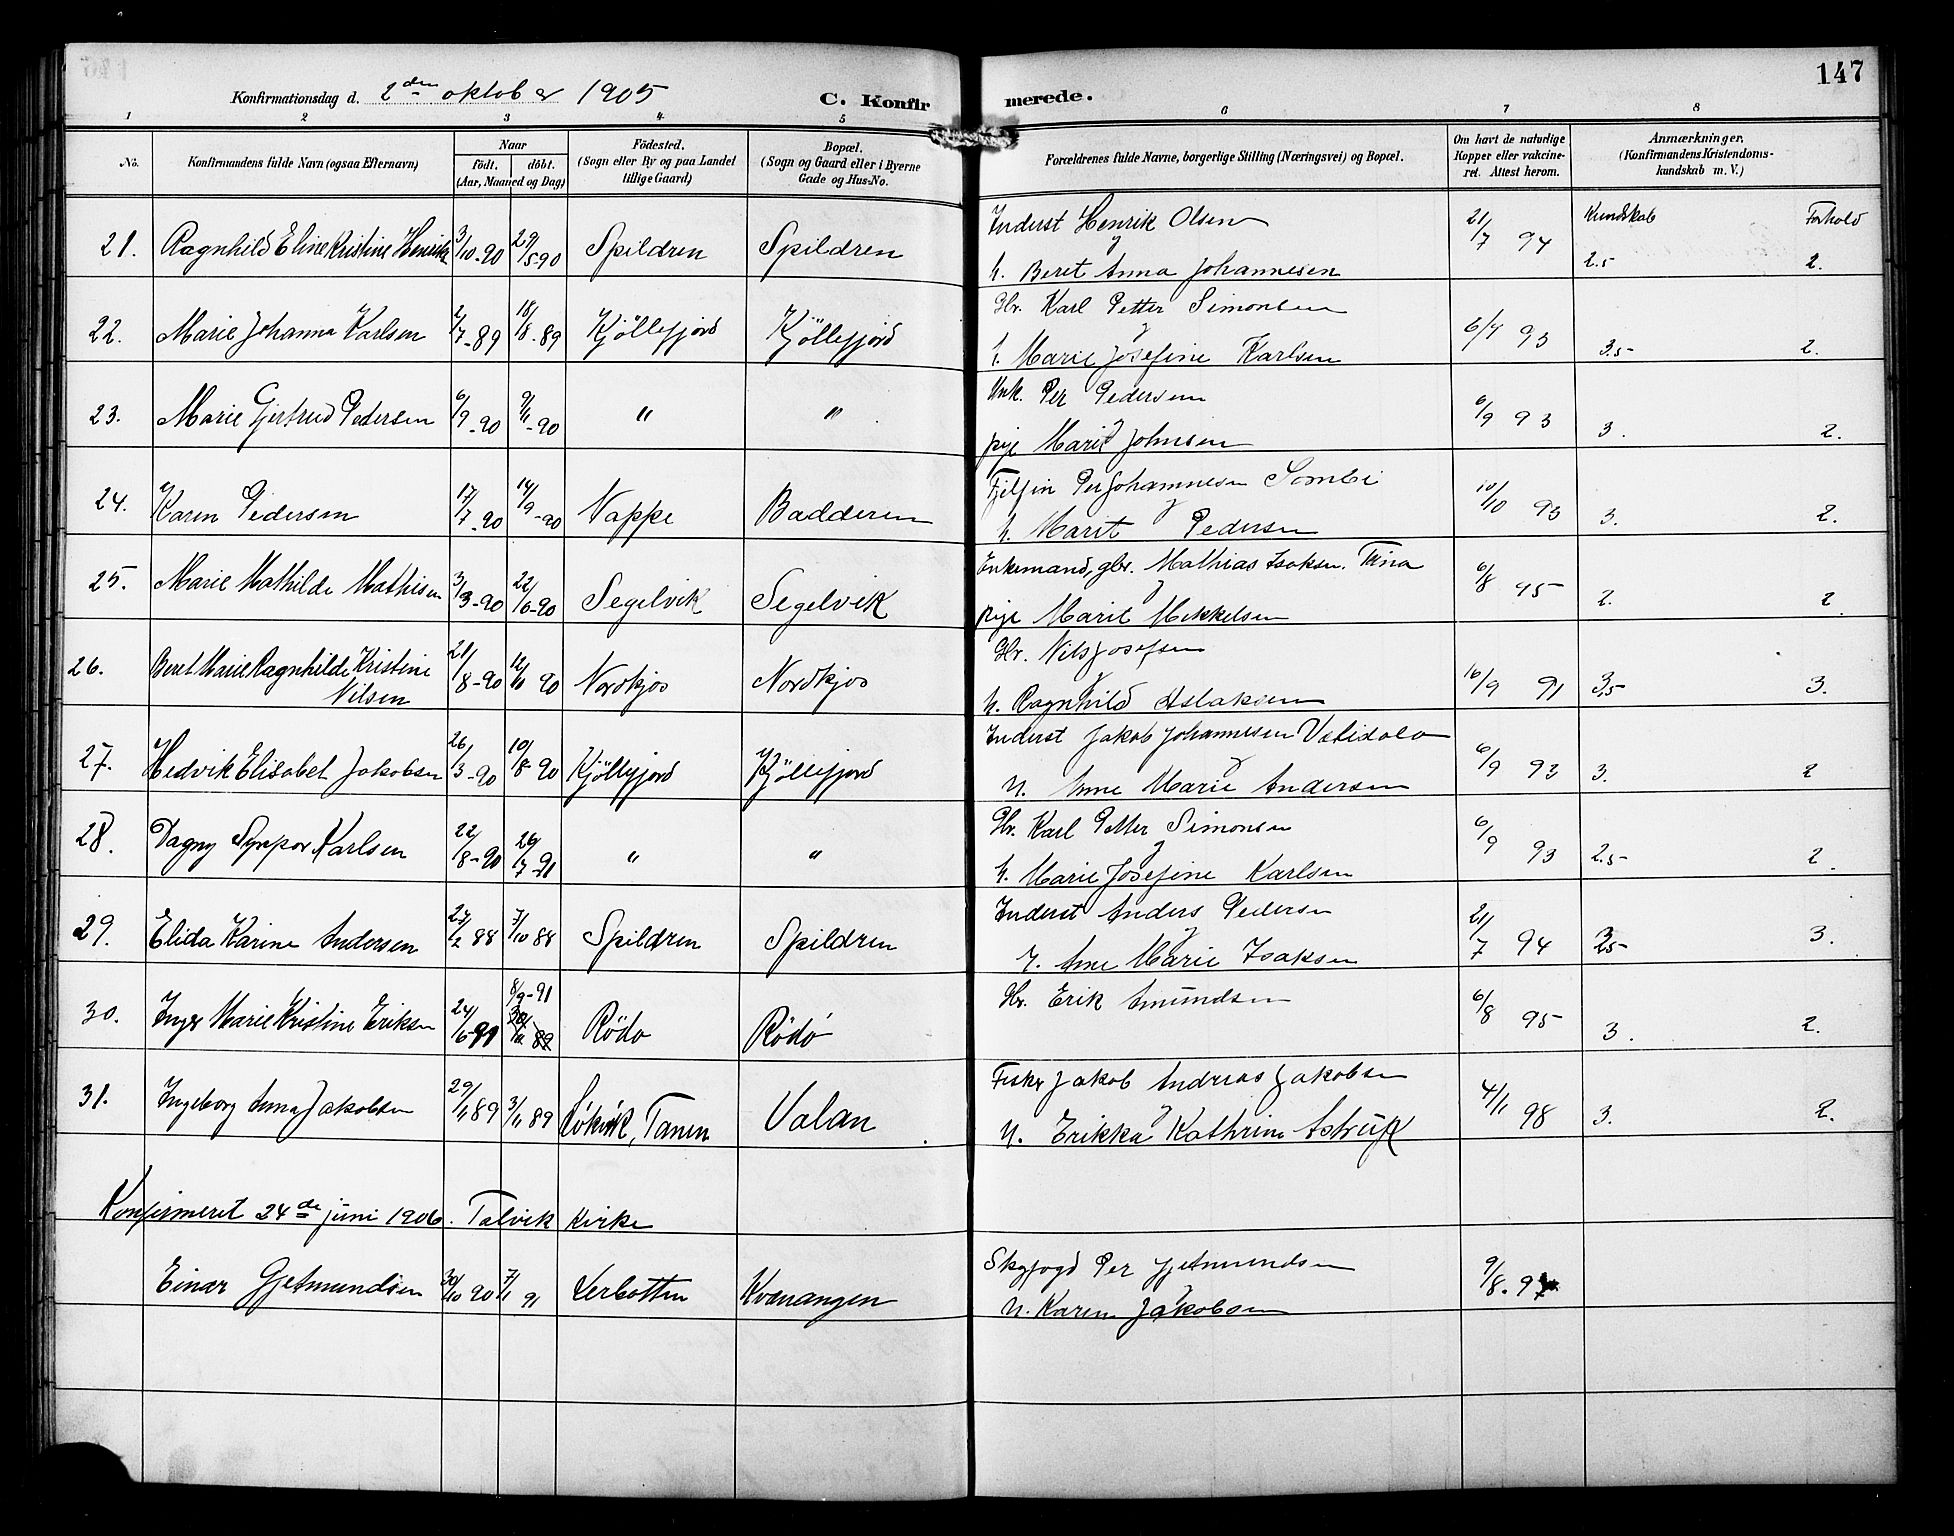 147
Konfirmationsdag d. 2den oktober 1905 C. Konfirmerede.
1 2 3 4. 5 6 7 8
No. Konfirmandens fulde Navn (ogsaa Efternavn) Naar födt. döbt. (Aar, Maaned og Dag) Födested. (Sogn eller By og paa Landet tillige Gaard) Bopæl. (Sogn og Gaard eller i Byerne Gade og Hus-No. Forældrenes fulde Navne, borgerlige Stilling (Næringsvei) og Bopæl. Om havt de naturlige Kopper eller vakcineret. Attest herom. Anmærkninger, (Konfirmandens Kristendomskundskab m. V.)
Kundskab Forhold
21. Ragnhild Eline Kristine Henriks 3/10-90 29/5-90 Spildren Spildren Inderst Henrik Olsen 21/7 94 2.5 2.
h. Beret Anna Johannesen
22. Marie Johanna Karlsen 2/7-89 18/8-89 Kjöllefjord Kjöllefjord Gbr. Karl Petter Simonsen 6/9 93 3.5 2.
h. Marie Josefine Karlsen
23. Marie Gjertrud Pedersen 6/9-90 9/11-90 " " Unk. Per Pedersen 6/9 93 3. 2.
pige Marit Johnsen
24. Karen Pedersen 17/7-90 14/9-90 Nappe Badderen Fjelfin Per Johannesen Sombi 10/10 93 3. 2.
h. Marit Pedersen
25. Marie Mathilde Mathisen 3/3-90 22/6-90 Segelvik Segelvik Enkemand, gbr. Mathias Isaksen. Trina 6/8 95 2. 2
pige Marit Mikkelsen
26. Beret Marie Ragnhilde Kristine 21/8-90 12/10 90 Nordkjos Nordkjos Gbr. Nils Josefsen 16/9 91 3,5 3.
Nilsen h. Ragnhild Aslaksen
27. Hedvik Elisabet Jakobsen 26/3-90 10/8 90 Kjöllefjord Kjöllefjord Inderst Jakob Johannesen Vatidalo 6/9 93 3. 2
h. Anne Marie Andersen
28. Dagny Karlsen 22/8-90 26/7-91 " " Gbr. Karl Petter Simonsen 6/9 93 2.5 2.
h. Marie Josefine Karlsen
29. Elida Karine Andersen 27/2 88 7/10 88 Spildren Spildren Inderst Anders Pedersen 21/7 94 3 2.5 3.
h. Ane Marie Isaksen
30. Inger Marie Kristine Eriksen 24/6-91 8/9-91 Rödo Rödö Gbr. Erik Amundsen 6/8 95 3. 2.
31. Ingeborg Anna Jakobsen 29/1 89 3/11 89 Tanen Valan Fisker Jakob Andreas Jakobsen 4/1 98 3. 2.
h. Erikka Kathrine Astrup
Konfirmeret 24de juni 1906. Talvik Kirke
Einar Gjetmundsen 30/10 90 7/1 91 Lerbotten Kvænangen Per Gjetmundsen 9/8.97
h. Karen Jakobsen